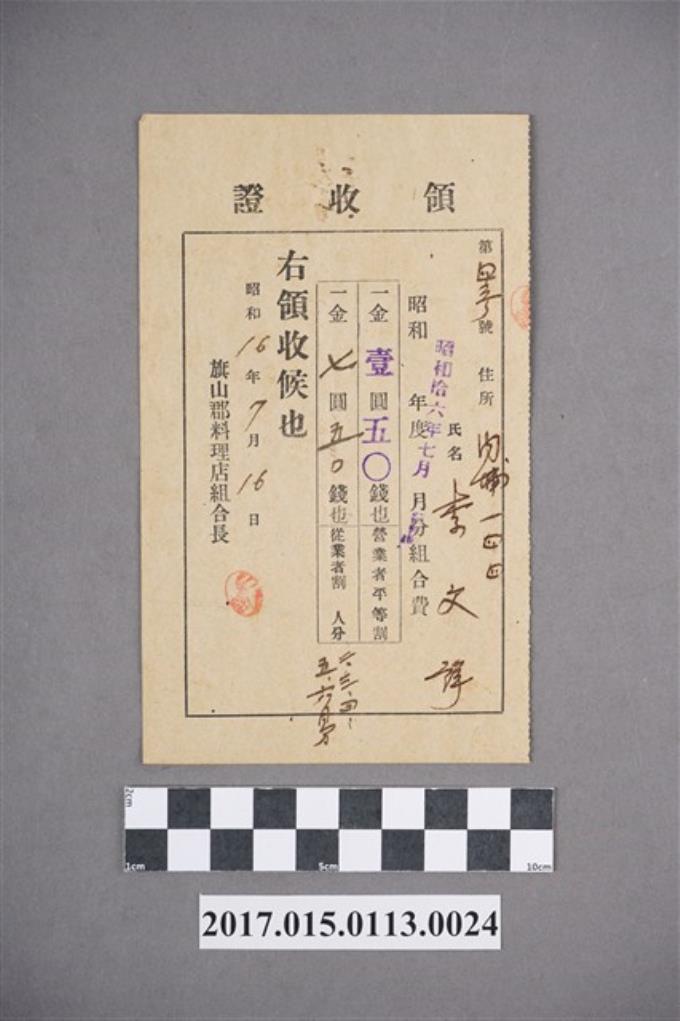 領收證
第 號 住所 內埔一四四
氏名 李文
昭和 年度 月分組合費
昭和拾六年七月
一金壹圓五〇錢也 營業者平等割
一金七圓五〇錢也 從業者割 人分
二、三、四、
五、六月分
右領收候也
昭和16年7月16日
旗山郡料理店組合長
2cm
1cm 5cm 10cm
2017.015.0113.0024